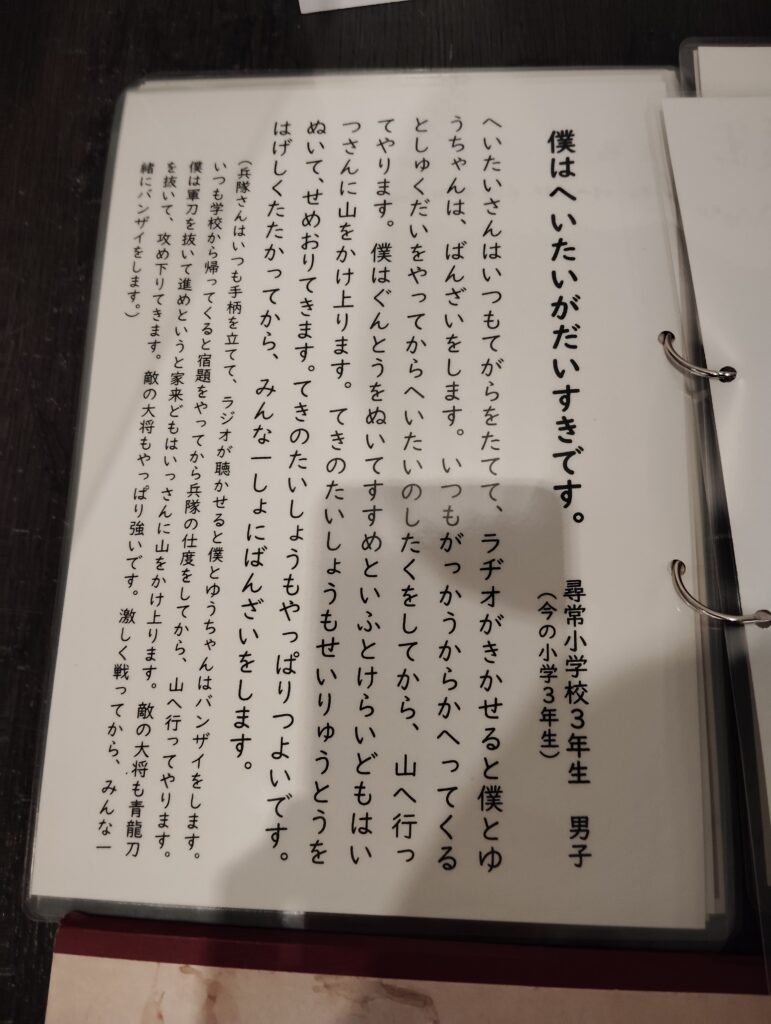 僕はへいたいがだいすきです。
尋常小学校3年生　男子
（今の小学3年生）
へいたさんはいつもてがらをたてて、ラヂオがきかせると僕とゆ
うちゃんは、ばんざいをします。いつもがっかうからかへってくる
としゅくだいをやってからへいたいのしたくをしてから、山へ行っ
てやります。僕はぐんとうをぬいてすすめといふとけらいどもはい
つさんに山をかけ上ります。てきのたいしょうもせいりゅうとうを
ぬいて、せめおりてきます。てきのたいしょうもやっぱりつよいです。
はげしくたたかってから、みんな一しょにばんざいをします。
（兵隊さんはいつも手柄を立てて、ラジオが聴かせると僕とゆうちゃんはバンザイをします。
いつも学校から帰ってくると宿題をやってから兵隊の仕度をしてから、山へ行ってやります。
僕は軍刀を抜いて進めというと家来どもはいっさんに山をかけ上ります。敵の大将も青龍刀
を抜いて、攻め下りてきます。敵の大将もやっぱり強いです。激しく戦ってから、みんな一
緒にバンザイをします。）